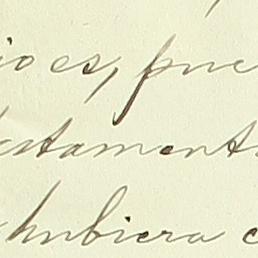 ioes, pue
estament
hubiera c